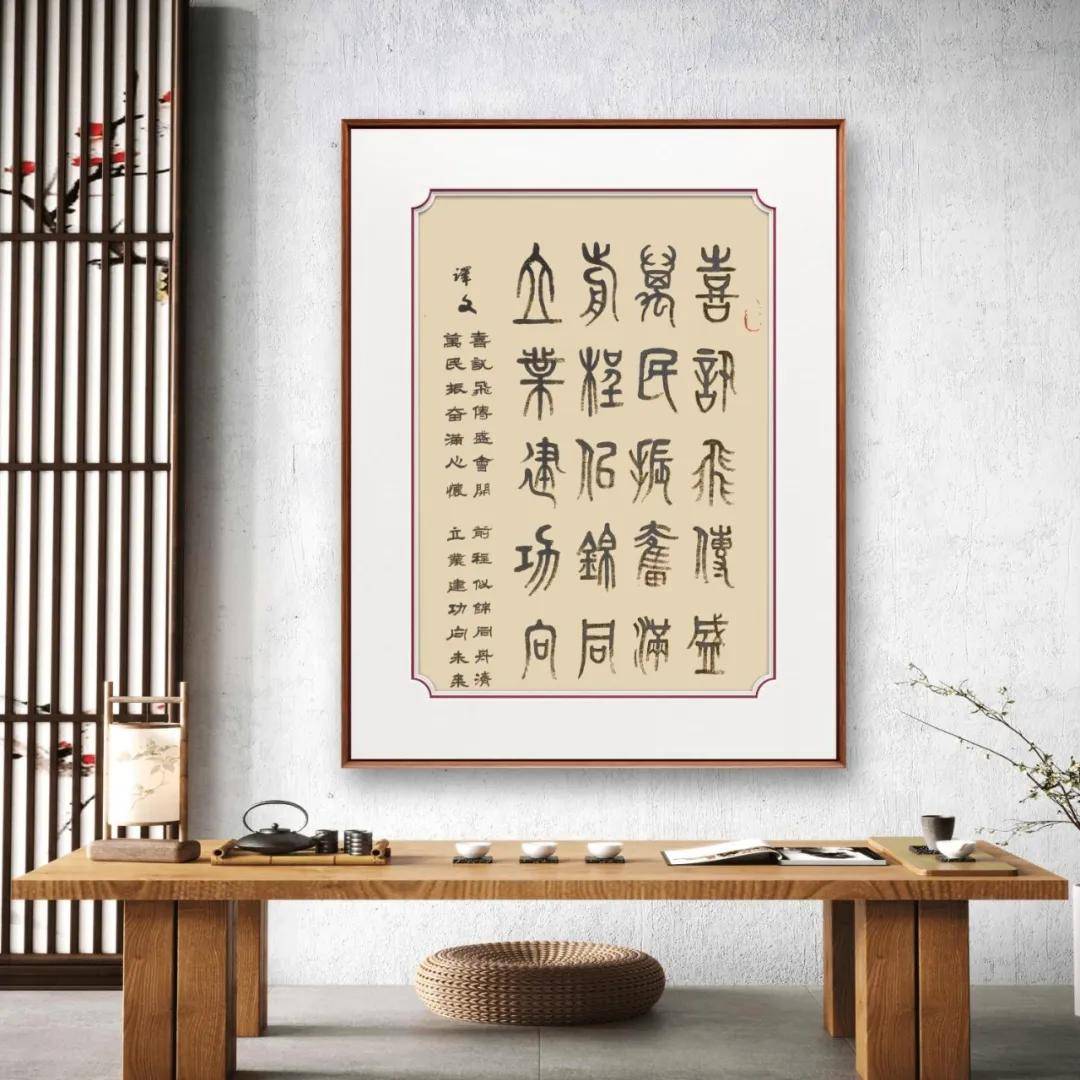 喜訊飛傳盛
萬民振奮滿
前程似錦同
立業建功向
譯文
喜訊飛傳盛會開 前程似錦同舟濟
萬民振奋滿心懷 立業建功向未來